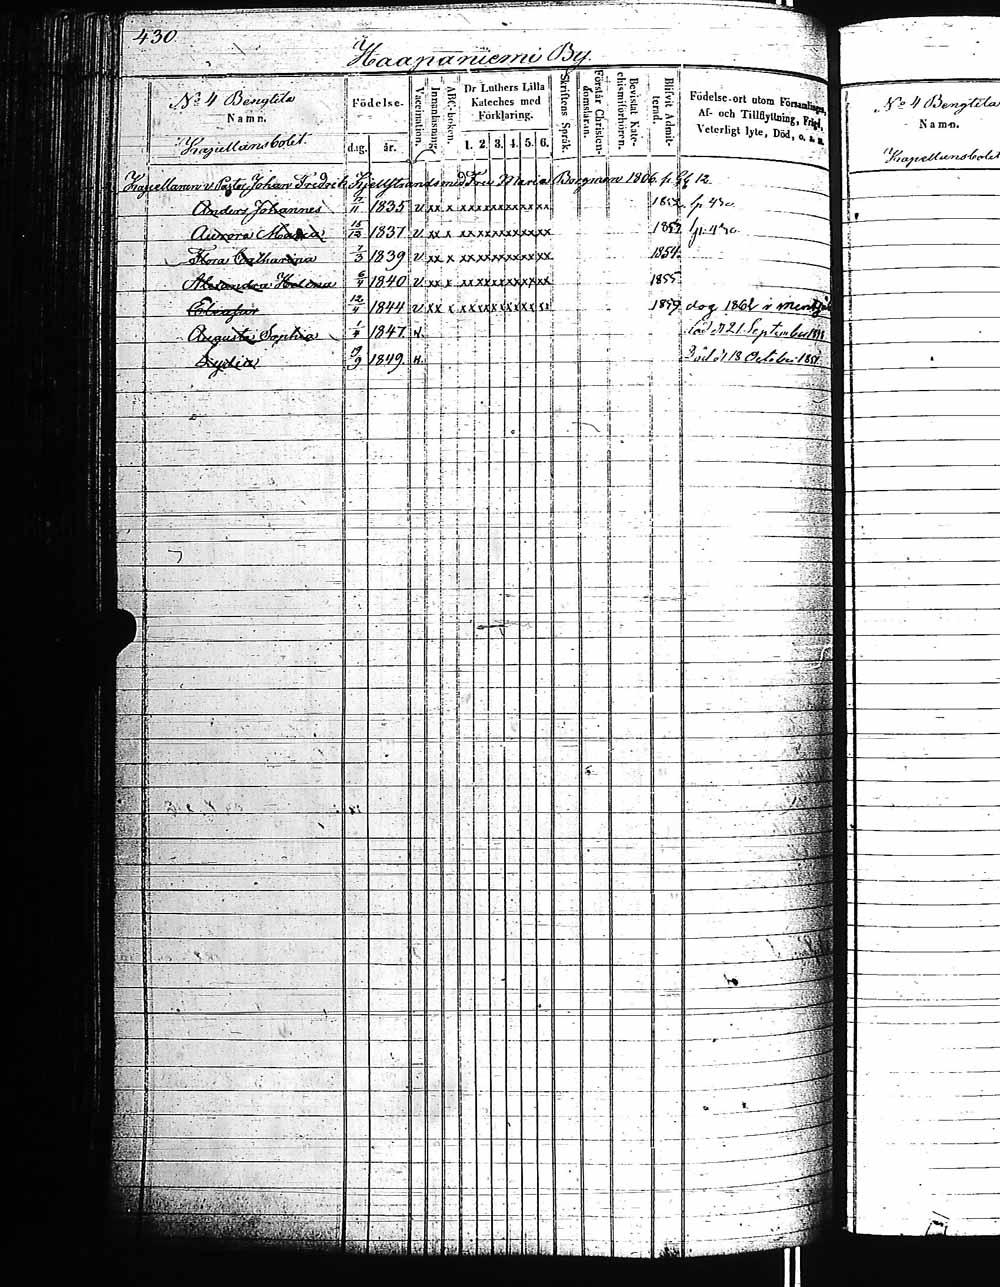 430
Haapaniemi By.
No 4 Bengtila
Namn.
Kapellansbolet.
Födelse-
dag. år.
Vaccination.
Innanläsning.
ABC-boken.
Dr Luthers Lilla Kateches med Förklaring.
1. 2. 3. 4. 5. 6.
Skriftens Språk.
Förstår Christendomsläran.
Bevistat Katechismiförhören.
Blifvit Admitterad.
Födelse-ort utom Församlingen,
Af- och Tillflyttning, Frägd,
Veterligt lyte, Död, o. s. v.
Kapellanen v. Pastor Johan Fredrik Kjellstrand med Fru Maria Borgman 1806. p.
Anders Johannes 1835 v xx x xxxxxxxxxxx 1852
Aurora Maria 1837 v xx x xxxxxxxxxxx
Flora Catharina 7/3 1839 v xx x xxxxxxxxxxx 1854
Alexandra Helena 6/4 1840 v xx x xxxxxxxxxxx 1855
12/4 1844 v xx x xxxxxxxxxxx 1859 dog
Augusta Sophia 1847 21 September
Lydia 9/9 1849 18 October
No 4 Bengtila
Namn.
Kapellansbolet